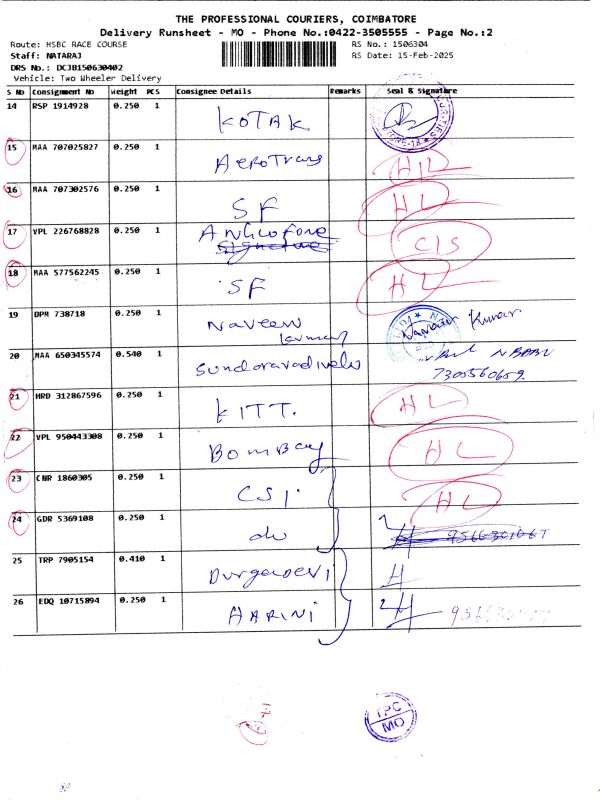 THE PROFESSIONAL COURIERS, COIMBATORE
Delivery Runsheet - MO - Phone No.:0422-3505555 - Page No.:2
Route: HSBC RACE COURSE RS No.: 1506304
Staff: NATARAJ RS Date: 15-Feb-2025
DRS No.: DCJB150630402
Vehicle: Two Wheeler Delivery
S No Consignment No Weight PCS Consignee Details Remarks Seal & Signature
14 RSP 1914928 0.250 1 KOTAK
15 MAA 707025827 0.250 1 AeroTrans HL
16 MAA 707302576 0.250 1 SF HL
17 VPL 226768828 0.250 1 CIS
18 MAA 577562245 0.250 1 SF HL
19 DPM 738718 0.250 1 Naveen Kumar
20 MAA 650345574 0.540 1 Sundaravadivelu
7305560659
21 HRD 312867596 0.250 1 KITT. HL
22 VPL 950443308 0.250 1 Bombay HL
23 CNR 1860305 0.250 1 CSI HL
24 GDR 5369108 0.250 1 do
25 TRP 7905154 0.410 1 Durgadevi
26 EDQ 10715894 0.250 1 HARINI
TPC
MO